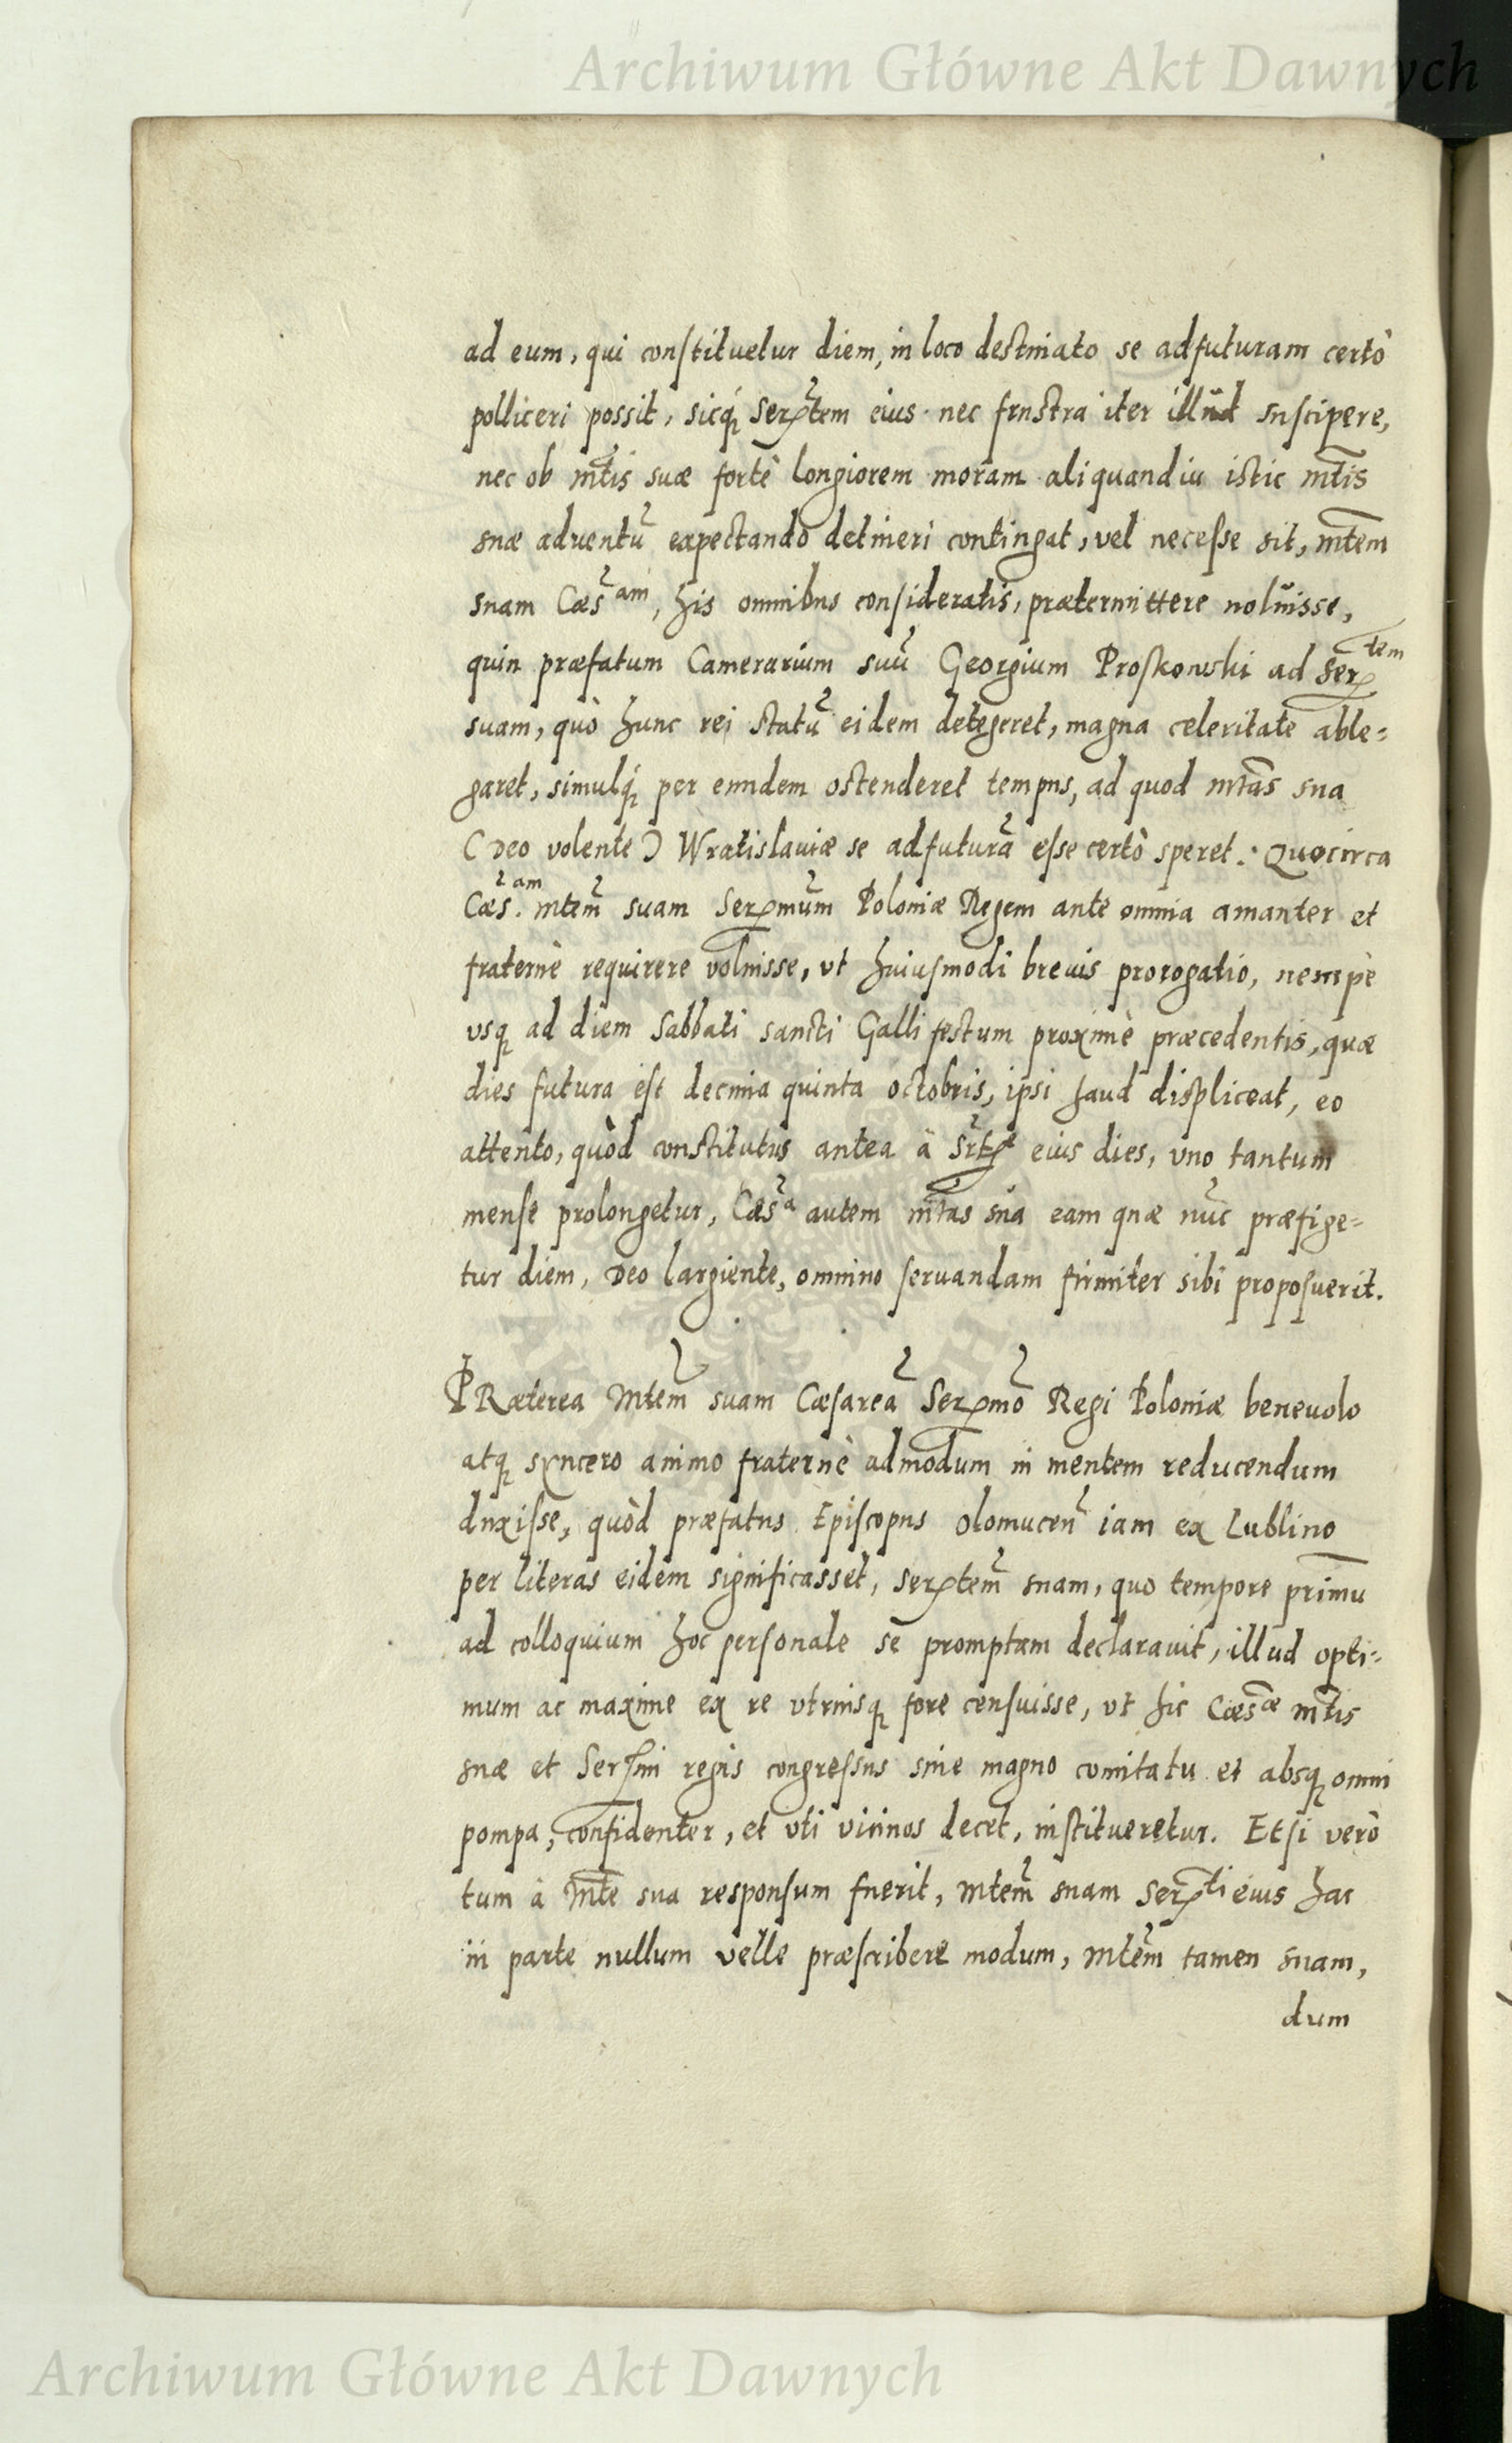 Archiwum Główne Akt Dawnych
ad eum, qui constituetur diem, in loco destinato se adfuturam certò
polliceri possit, sicq́ Serᵗtem eius nec frustra iter illud suscipere,
nec ob mtis suæ fortè longiorem moram aliquandiu istic mtis
suæ aduentū expectando detineri contingat, vel necesse sit, mtem
suam Cæsam, his omnibus consideratis, prætermittere noluisse,
quin præfatum Camerarium suū Georgium Proskowski ad Sertem
suam, quò hunc rei statū eidem detegeret, magna celeritate able=
garet, simulq́ per eundem ostenderet tempus, ad quod mtas sua
(Deo volente) Wratislauiæ se adfuturā esse certò speret: Quocirca
Cæs.am mtem suam Sermum Poloniæ Regem ante omnia amanter et
fraternè requirere voluisse, vt huiusmodi breuis prorogatio, nempè
vsq ad diem Sabbati sancti Galli festum proximè præcedentis, quæ
dies futura est decima quinta octobris, ipsi haud displiceat, eo
attento, quòd constitutus antea à Srte eius dies, vno tantum
mense prolongetur, Cæsa autem mtas sua eam quæ nūc præfige=
tur diem, Deo largiente, omnino seruandam firmiter sibi proposuerit.
PRæterea Mtem suam Cæsareā Sermo Regi Poloniæ beneuolo
atq syncero animo fraternè admodum in mentem reducendum
duxisse, quòd præfatus Episcopus Olomucen iam ex Lublino
per literas eidem significasset, Sertem suam, quo tempore primū
ad colloquium hoc personale se promptam declarauit, illud opti=
mum ac maxime ex re vtriusq fore censuisse, vt hic Cæsæ mtis
suæ et Sermi regis congressus sine magno comitatu et absq omni
pompa, confidenter, et vti vicinos decet, institueretur. Etsi verò
tum à Mte sua responsum fuerit, Mtem suam Serti eius hac
in parte nullum velle præscribere modum, Mtem tamen suam,
dum
Archiwum Główne Akt Dawnych